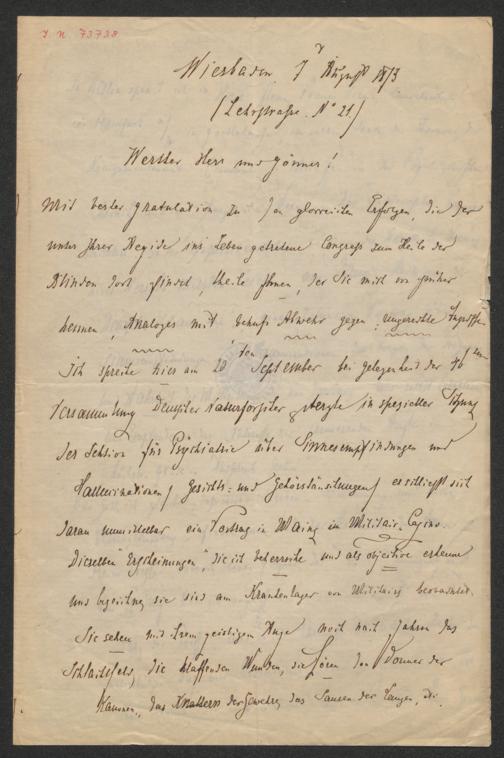 J. N. 73738
Wiesbaden 7 August 1873
(Lehrstraße No 21.)
Werther Herr und Gönner!
Mit bester Gratulation zu den glorreichen Erfolgen, die der
unter Ihrer Aegide ins Leben getretene Congress zum Heile der
Blinden dort findet, theile Ihnen, der Sie mich von früher
kennen, Analoges mit behufs Abwehr gegen ungerechte Angriffe.
Ich spreche hier am 20ten September bei Gelegenheit der 46ten
Versammlung Deutscher Naturforscher Aerzte in spezieller Sitzung
der Sektion für Psychiatrie über Sinnesempfindungen und
Hallucinationen (Gesichts- und Gehörstäuschungen) es schließt sich
daran unmittelbar ein Vortrag in Mainz im Militair-Casino.
Dieselben "Erscheinungen", die ich beherrsche und als objective erkenne
und bezeichne, sie sind am Krankenlager von Militairs beobachtet.
Sie sehen mit ihrem geistigen Auge noch nach Jahren das
Schlachtfeld, die klaffenden Wunden, sie hören den Donner der
Kanonen, das Knattern der Gewehre, das Sausen der Lanzen, die